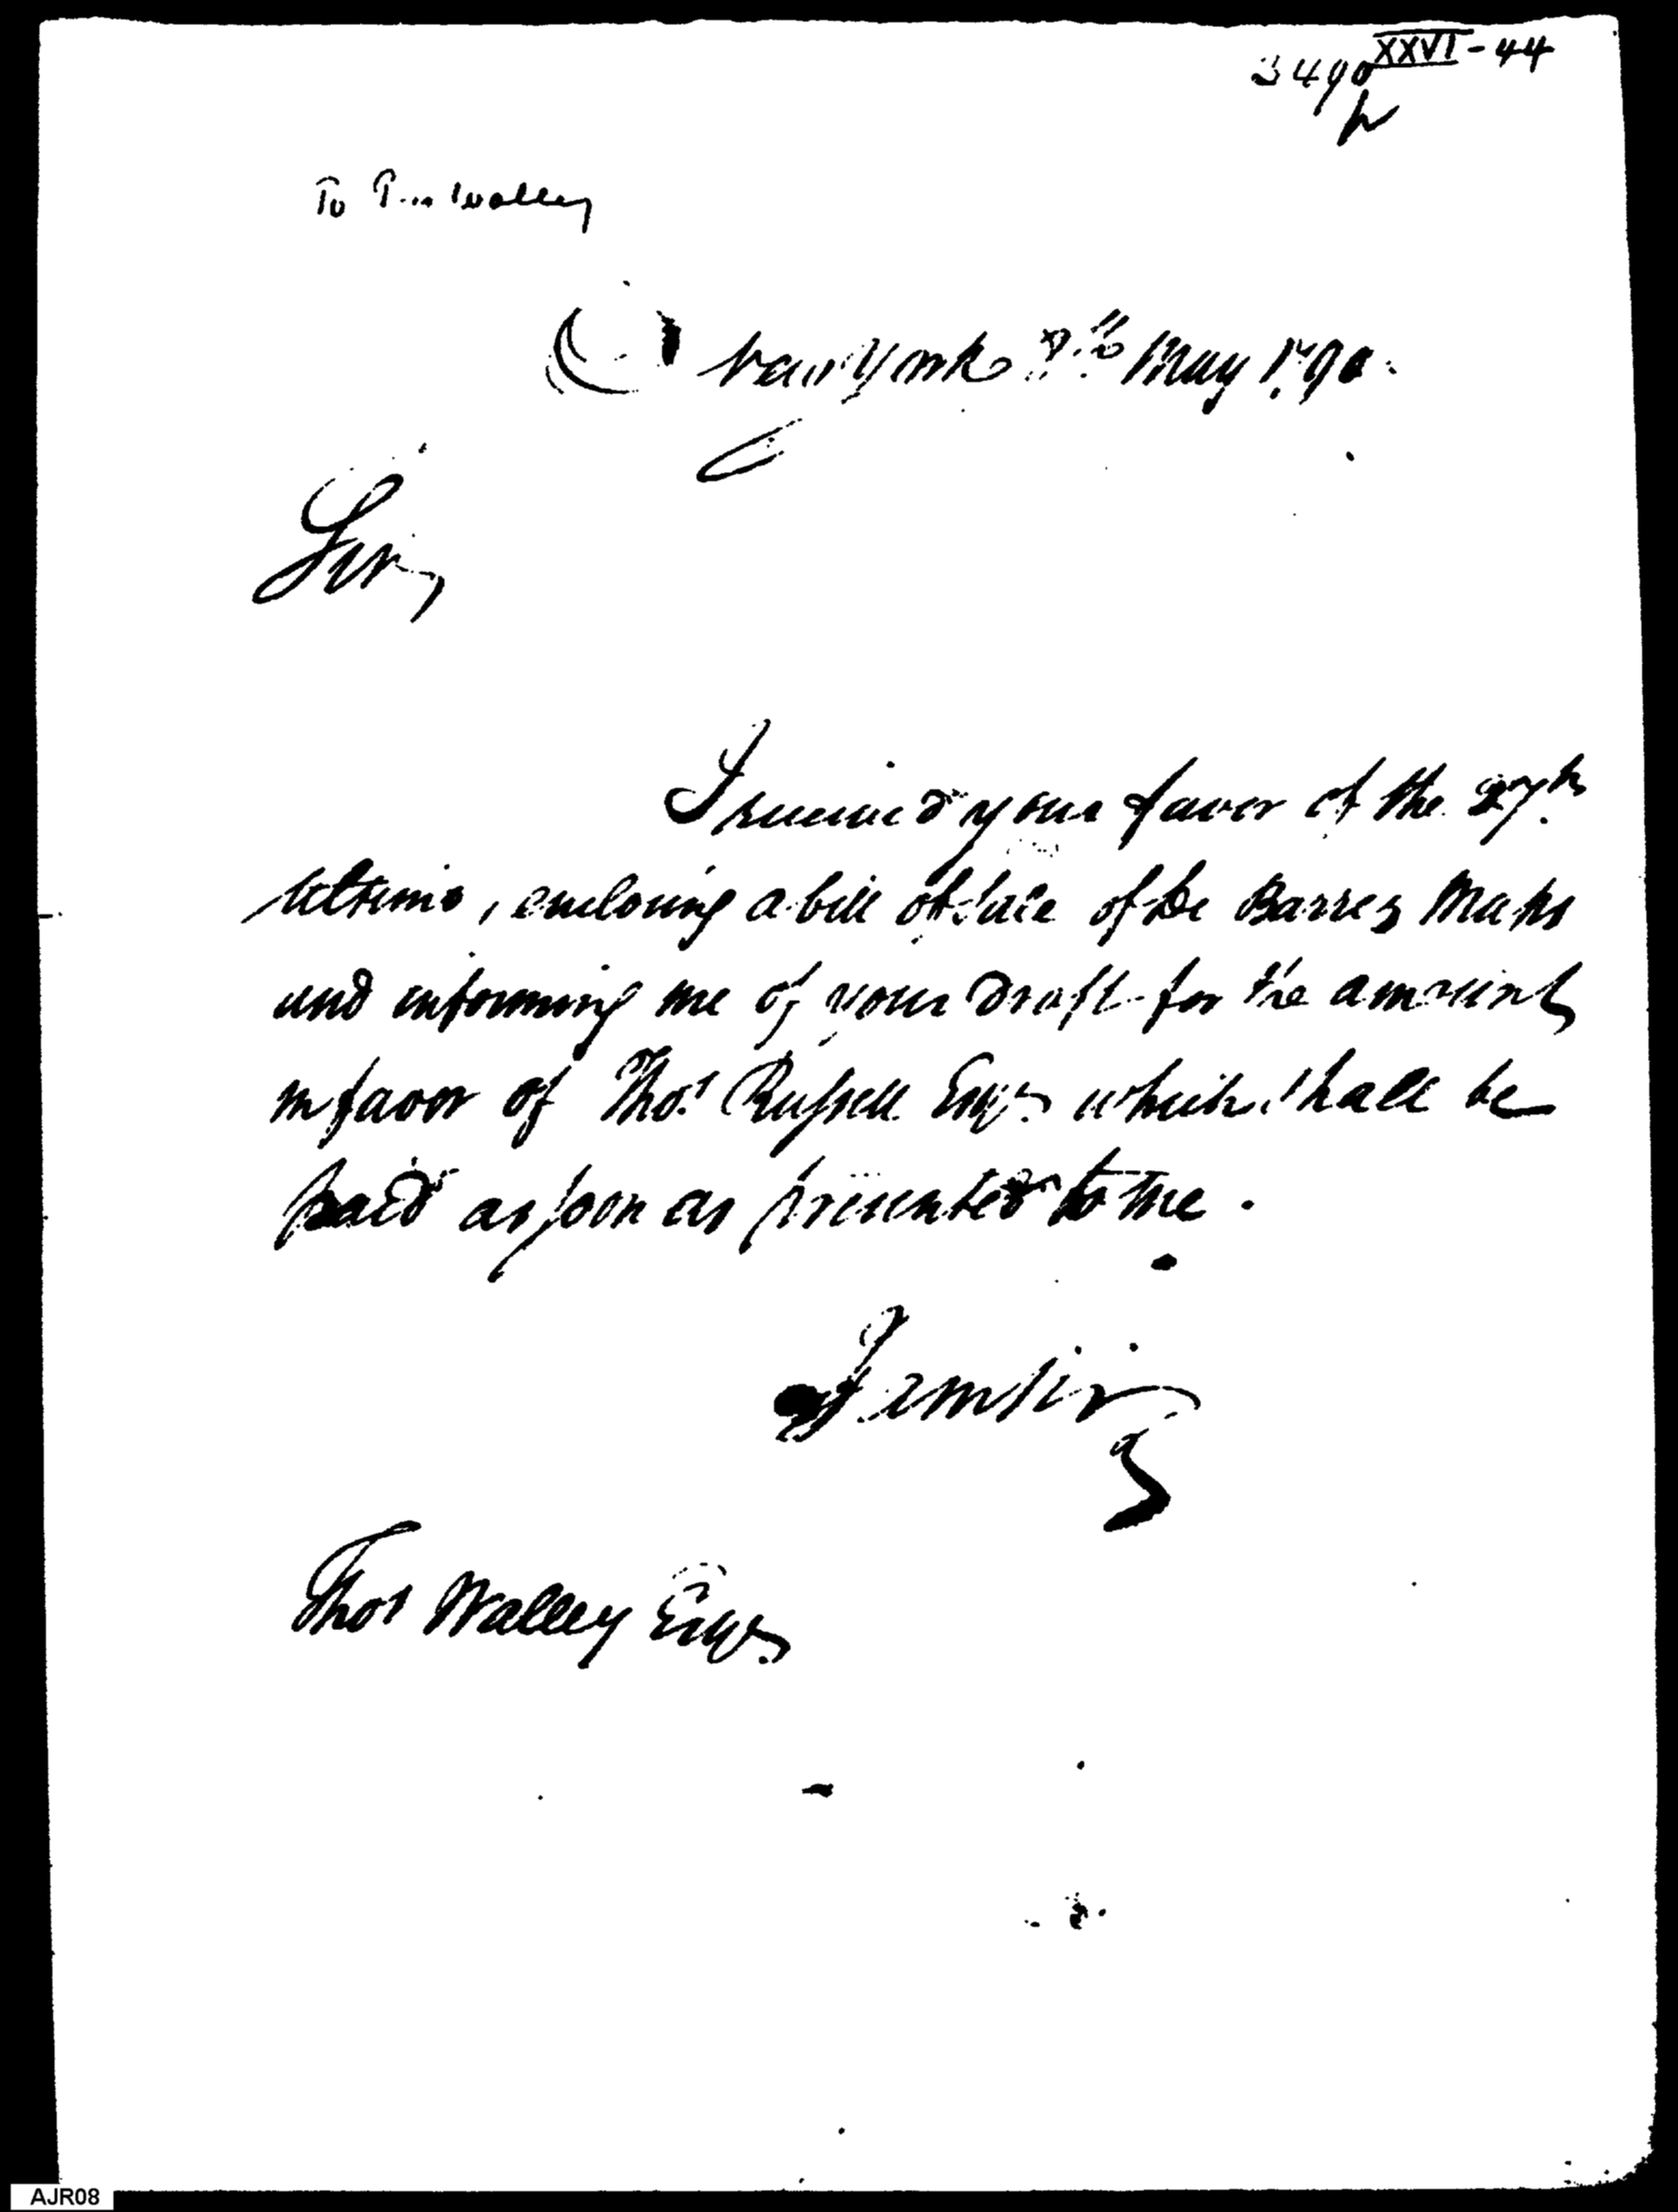 XXVI - 44
3490
To Walley
New York May 1790.
Sir,
I received your favor of the 27th
ultimo, enclosing a bill of sale of De Barres Maps
and informing me of your Draft for the amount
in favor of Thos. Russell Esqr. which shall be
paid as soon as presented to me.
I am Sir
Thos Walley Esqr.
AJR08